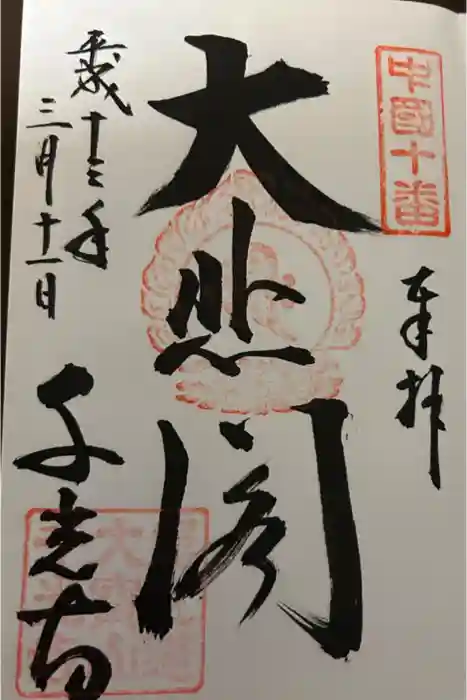 中國十番
奉拝
大悲閣
平成十三年
三月十一日
千光寺